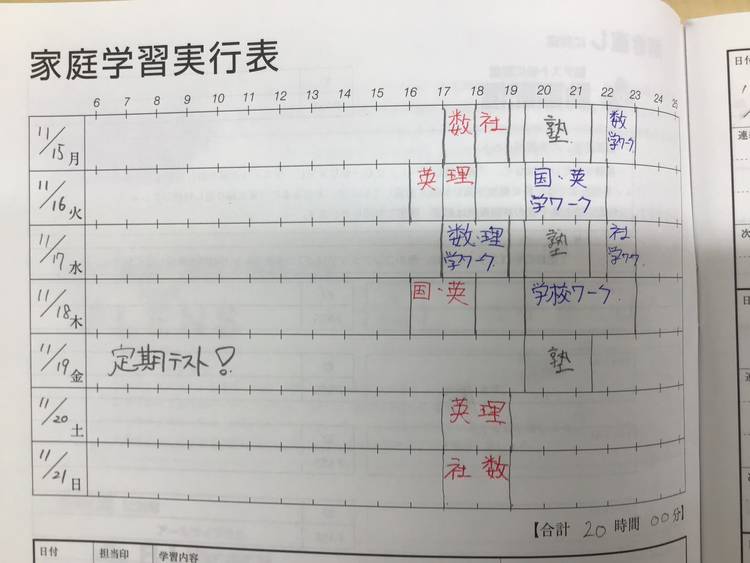 家庭学習実行表
6 7 8 9 10 11 12 13 14 15 16 17 18 19 20 21 22 23 24 25
11/15月 数 社 塾 数
学ワーク
11/16火 英 理 国・英
学ワーク
11/17水 数・理 塾 社
学ワーク 学ワク
11/18木 国・英 学校ワーク
11/19金 定期テスト! 塾
11/20土 英 理
11/21日 社 数
【合計 20 時間 00分】
日付 担当印 学習内容